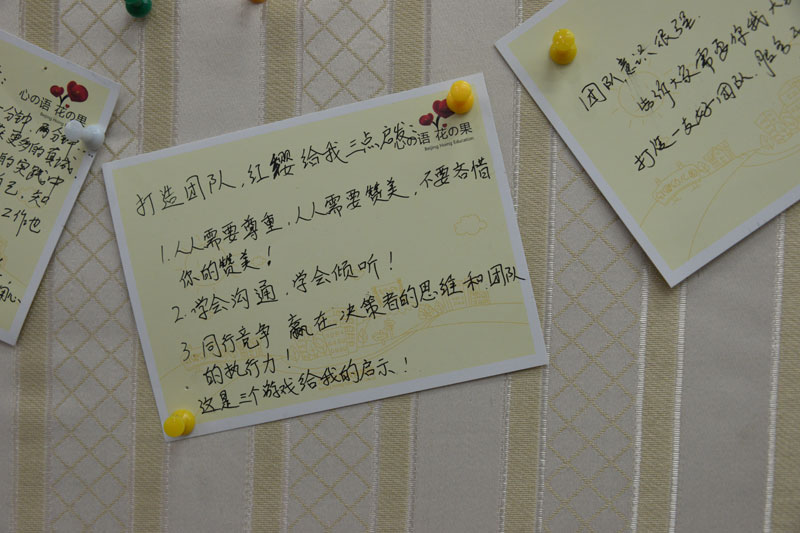 心の语 花の果
Beijing Hoing Education
打造团队,红缨给我三点启发:
1.人人需要尊重,人人需要赞美,不要吝惜
你的赞美!
2.学会沟通,学会倾听!
3.同行竞争 赢在决策者的思维和团队
的执行力!
这是三个游戏给我的启示!
心の语 花の果
一分钟,两分钟
的实践中
工作也
团队意识很强.
告诉大家需要你我
打造一支好团队.